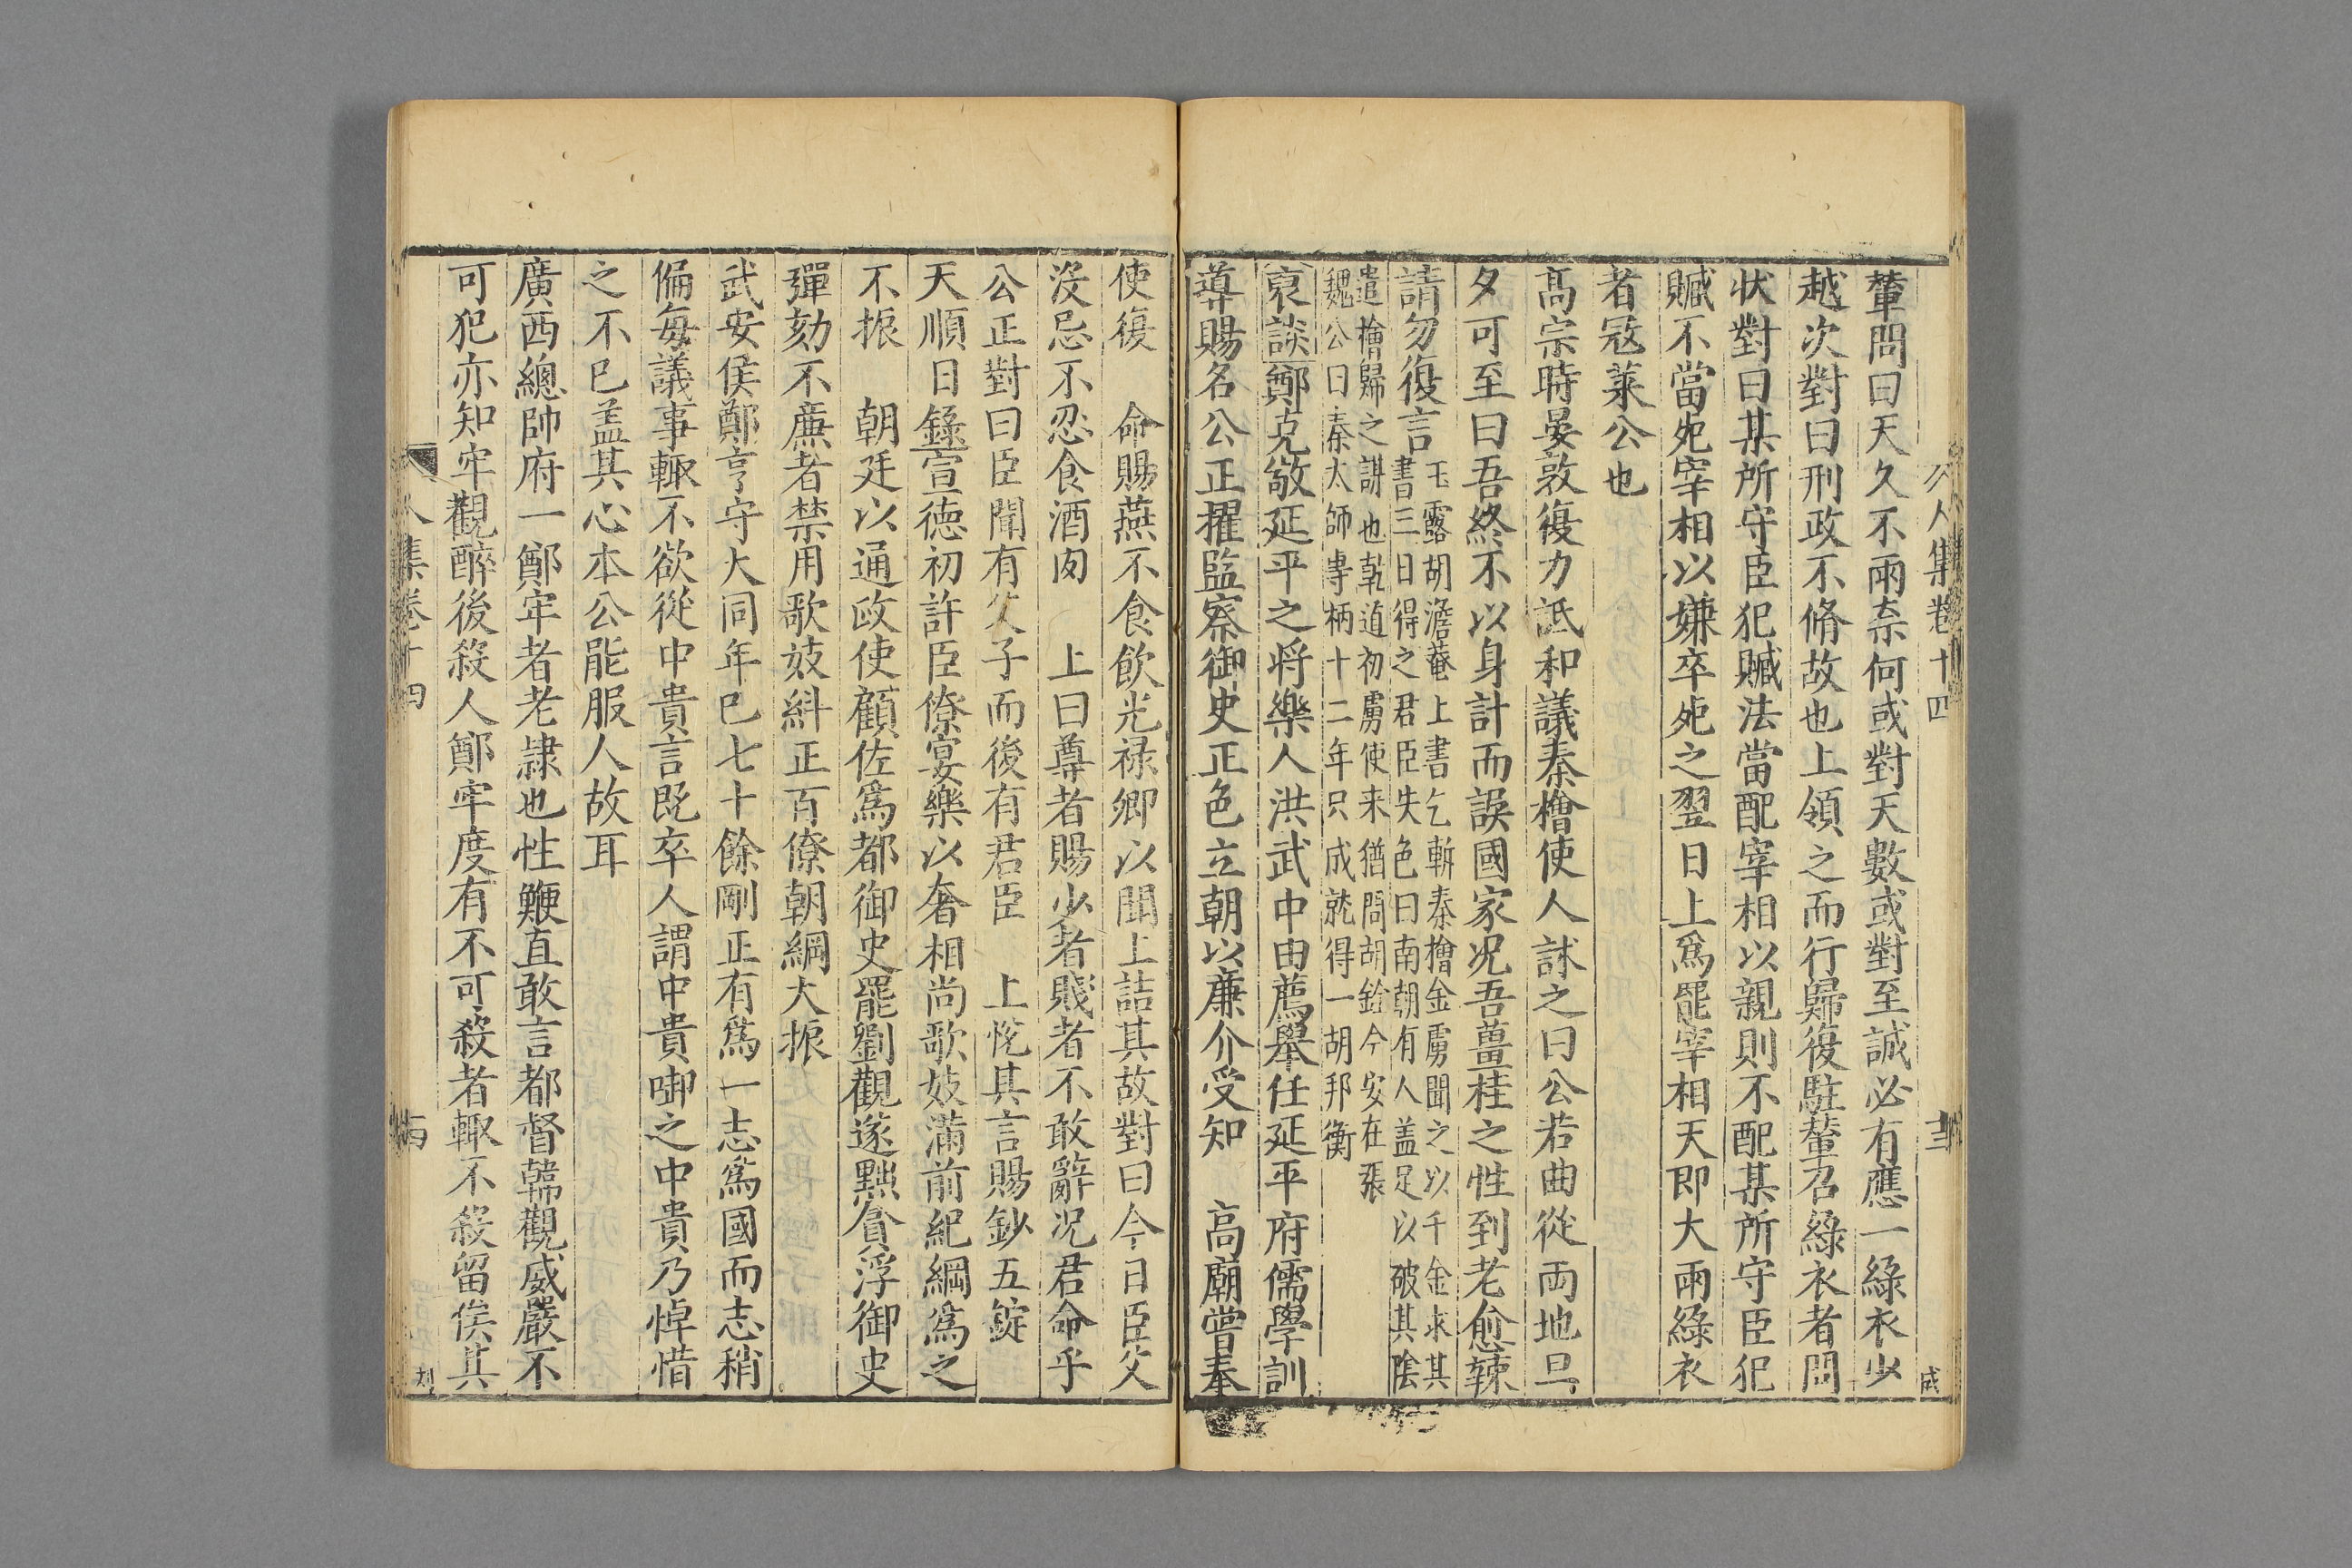 人集卷十四 十三 成
輦問曰天久不雨柰何或對天數或對至誠必有應一綠衣少
越次對曰刑政不脩故也上領之而行歸復駐輦召綠衣者問
狀對曰某所守臣犯贓法當配宰相以親則不配某所守臣犯
贓不當死宰相以嫌卒死之翌日上爲罷宰相天即大雨綠衣
者冦萊公也
髙宗時晏敦復力詆和議秦檜使人訹之曰公若曲從両地旦
夕可至曰吾終不以身計而誤國家况吾薑桂之性到老愈辣
請勿復言
玉露胡澹菴上書乞斬秦檜金虜聞之以千金求其
書三日得之君臣失色曰南朝有人盖足以破其陰
遣檜歸之謀也乾道初虜使来猶問胡銓今安在張
魏公曰秦太師専柄十二年只成就得一胡邦衡
裒談鄭克敬延平之将樂人洪武中由薦舉任延平府儒學訓
導賜名公正擢監察御史正色立朝以廉介受知 高廟嘗奉
使復 命賜燕不食飲光禄卿以聞上詰其故對曰今日臣父
没忌不忍食酒肉 上曰尊者賜少者賤者不敢辭况君命乎
公正對曰臣聞有父子而後有君臣 上悅其言賜鈔五錠
天順日錄宣德初許臣僚宴樂以奢相尚歌妓滿前紀綱爲之
不振 朝廷以通政使顧佐爲都御史罷劉觀遂黜貪滛御史
彈劾不廉者禁用歌妓糾正百僚朝綱大振
武安侯鄭亨守大同年巳七十餘剛正有爲一志爲國而志稍
偏每議事輙不欲從中貴言既卒人謂中貴啣之中貴乃悼惜
之不巳盖其心本公能服人故耳
廣西總帥府一鄭牢者老隷也性鯁直敢言都督韓觀威嚴不
可犯亦知牢觀醉後殺人鄭牢度有不可殺者輙不殺留俟其
人集卷十四 十四 刘